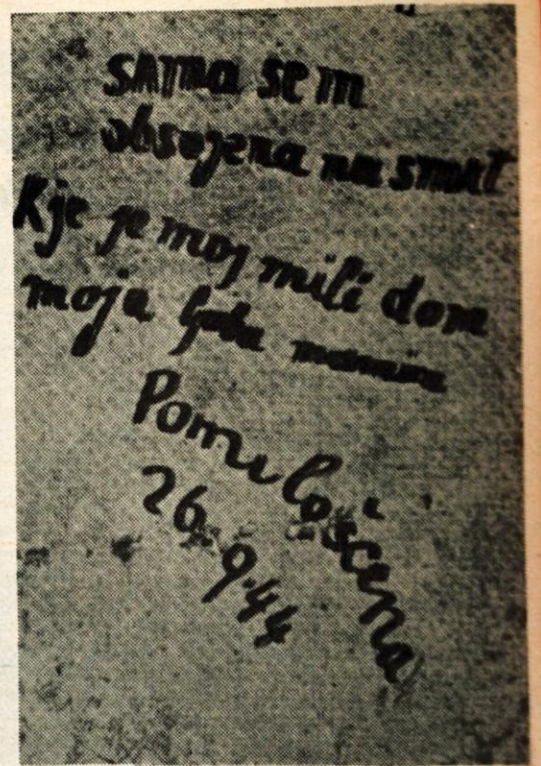 sama sem
obsojena na smrt
Kje je moj mili dom
moja ljuba mamica
Pomiloščena
26.9.44